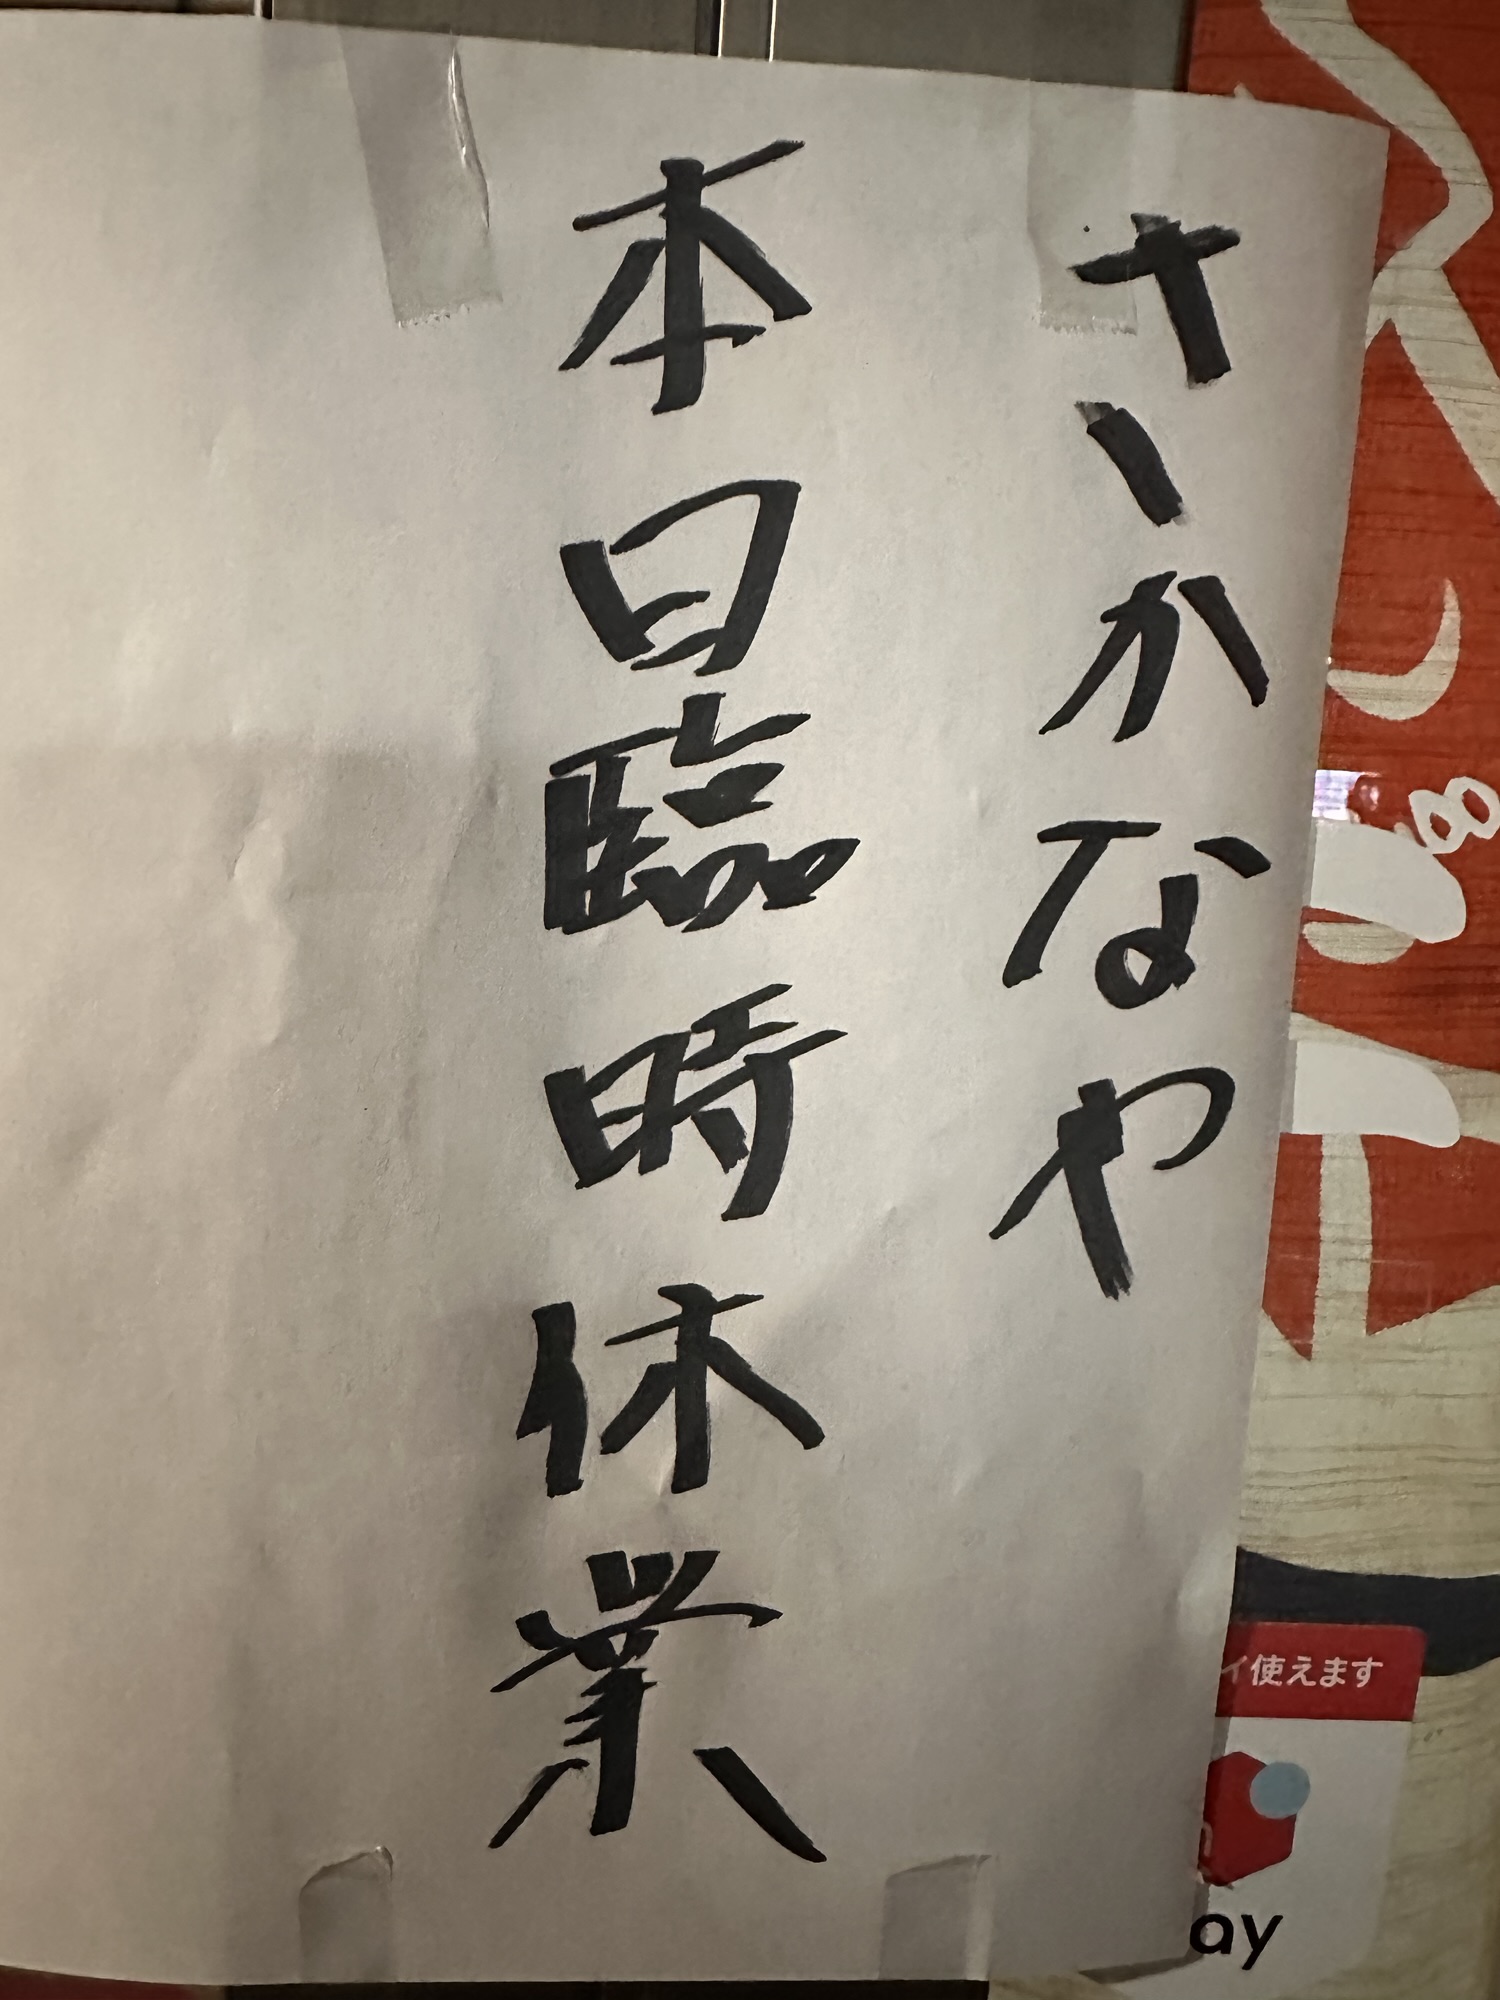 さかなや
本日臨時休業
イ使えます
ay